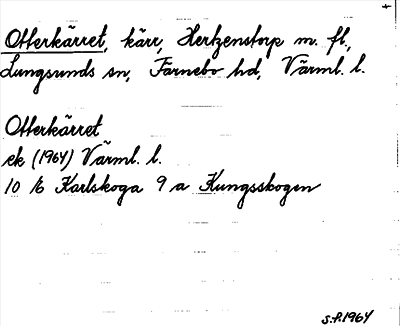 Otterkärret, kärr, Hertzenstorp m. fl.,
Lungsunds sn, Färnebo hd, Värml. l.
Otterkärret
ek (1964) Värml. l.
10 /6 Karlskoga 9 a Kungsskogen
S.f.1964